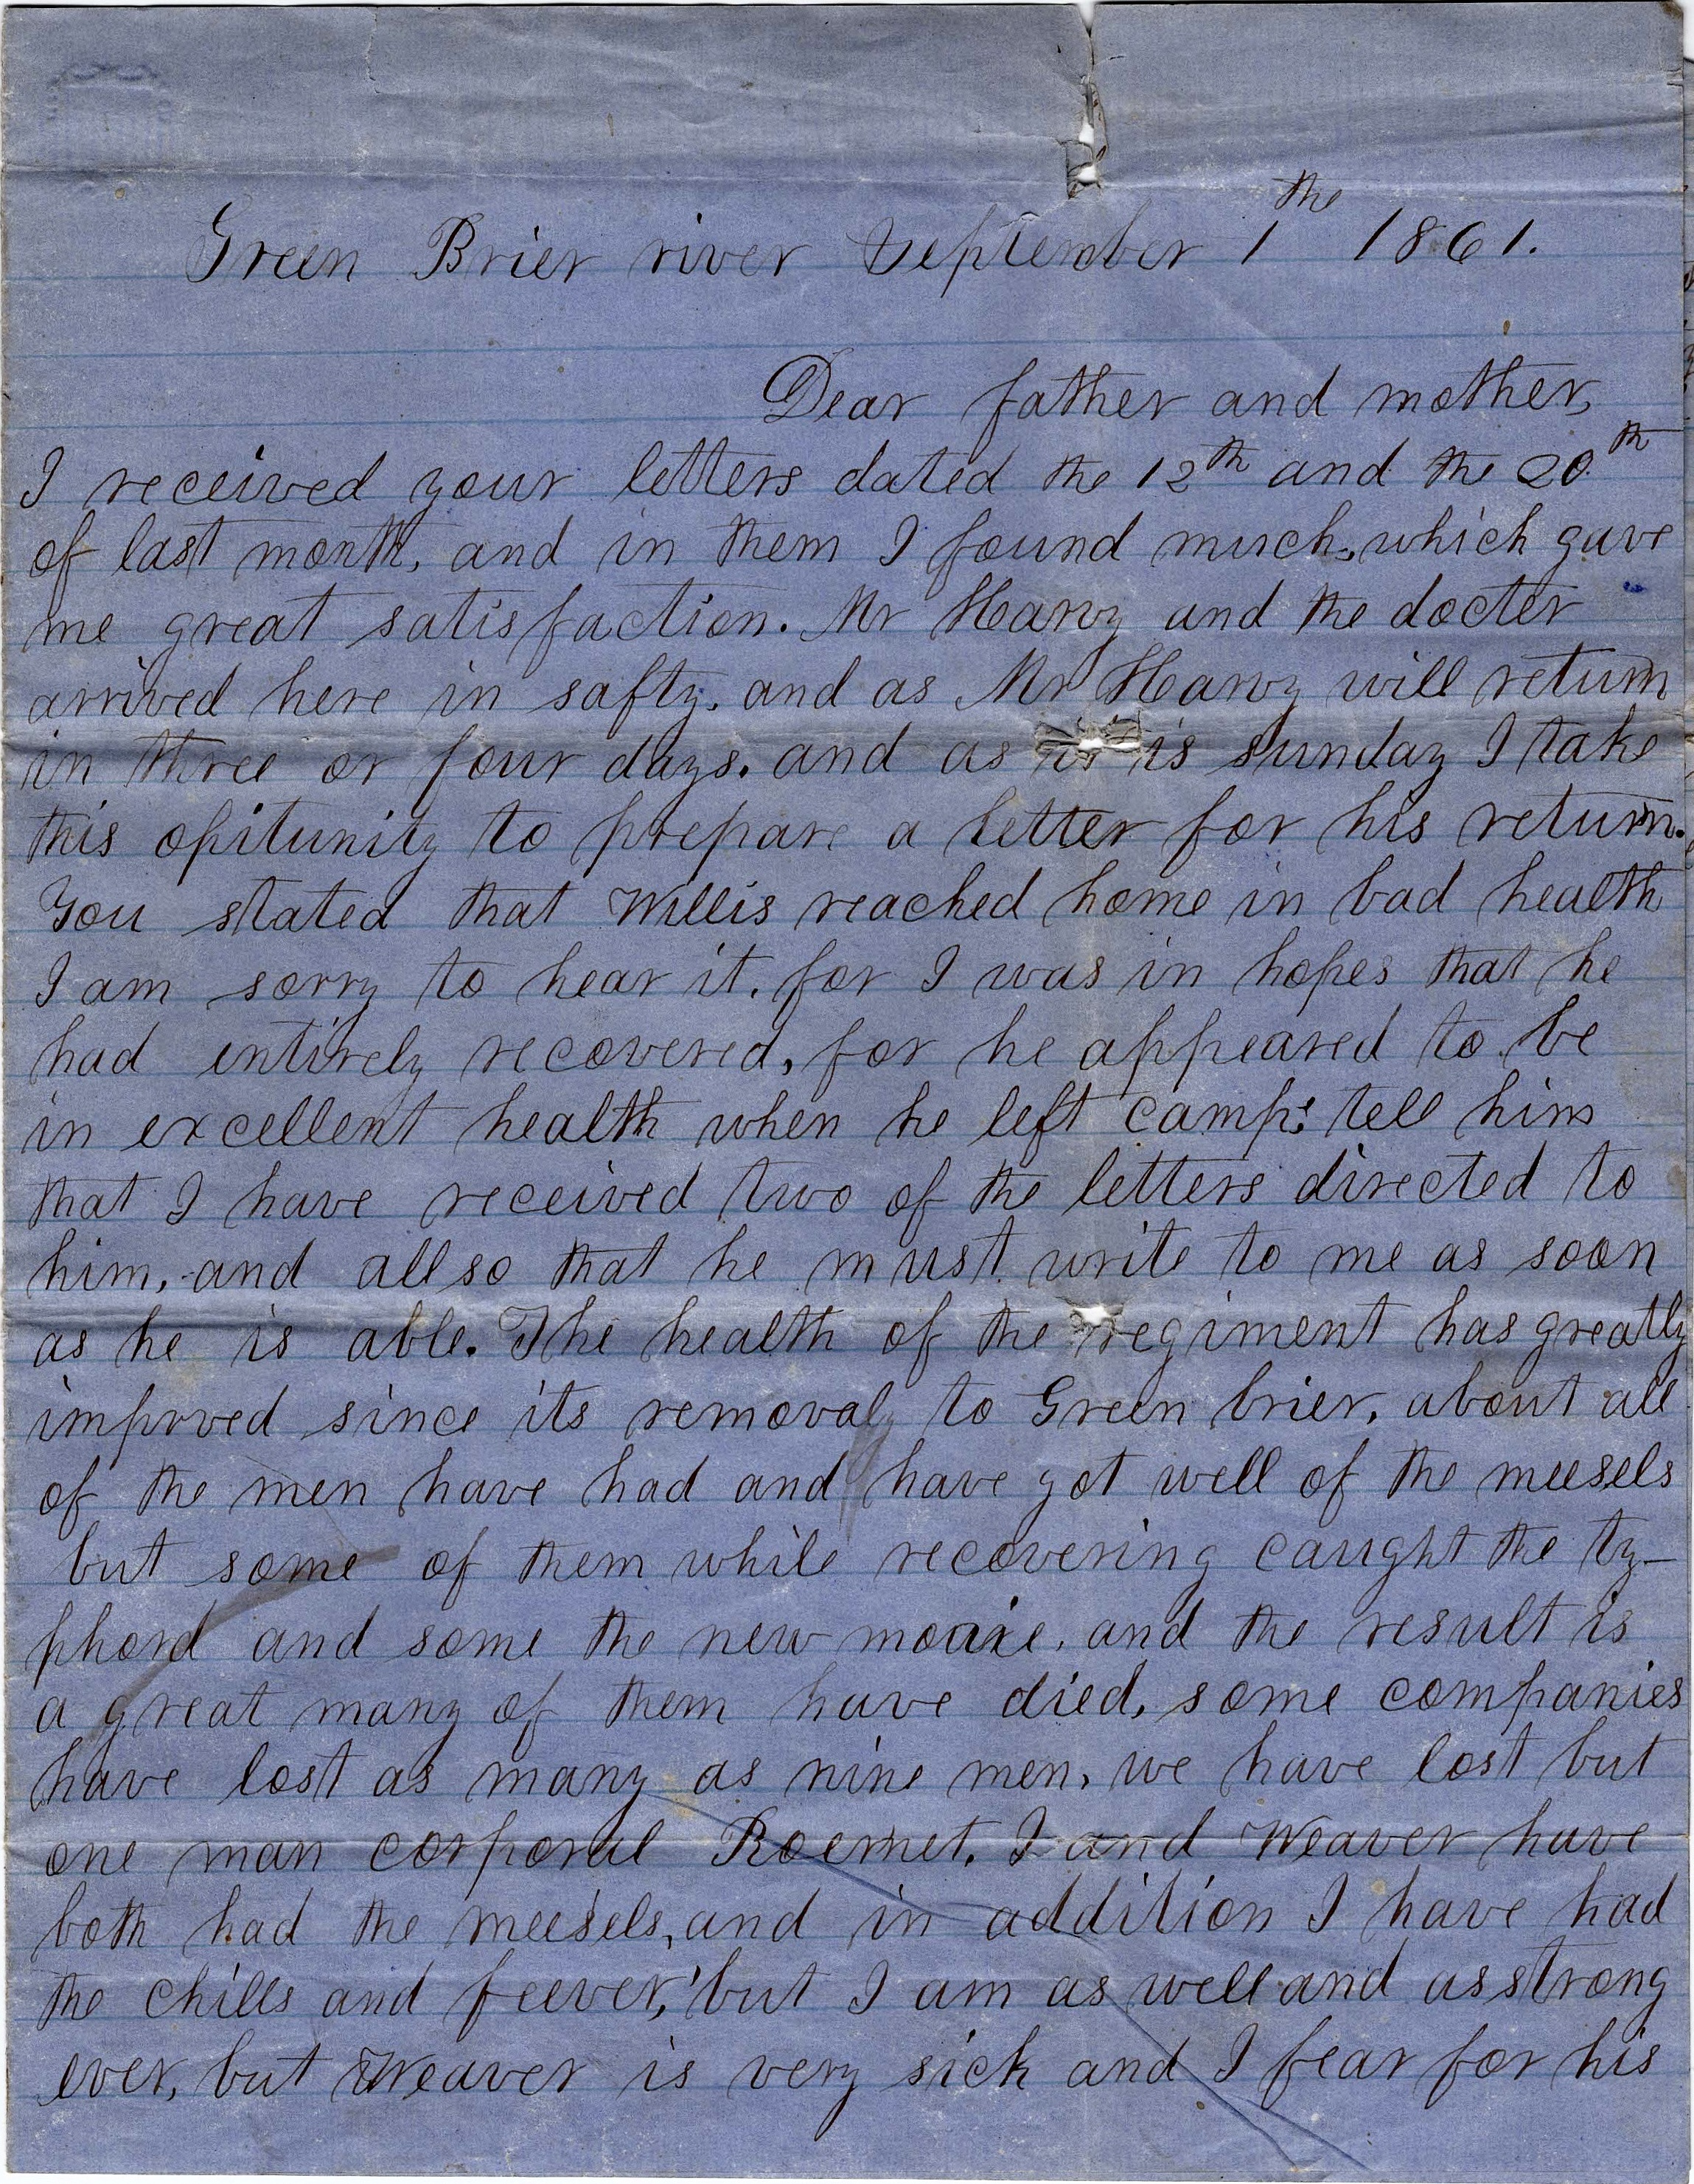 Green Brier river September 1the 1861.
Dear father and mother,
I received your letters dated the 12th and the 20th
of last month, and in them I found much, which gave
me great satisfaction. Mr Harvy and the docter
arrived here in safty. and as Mr Harvy will return
in three or four days. and as it is sunday I take
this opitunity to prepare a letter for his return.
You stated that Willis reached home in bad health
I am sorry to hear it, for I was in hopes that he
had entirely recovered, for he appeared to be
in excellent health when he left camp: tell him
that I have received two of the letters directed to
him, and allso that he must write to me as soon
as he is able. The health of the regiment has greatly
improved since its removal to Green brier, about all
of the men have had and have got well of the meesels
but some of them while recovering caught the ty-
phord and some the new moaie, and the result is
a great many of them have died, some companies
have lost as many as nine men, we have lost but
one man corporal I and Weaver have
both had the meesels, and in addition I have had
the chills and feever, but I am as well and as strong
ever, but Weaver is very sick and I fear for his